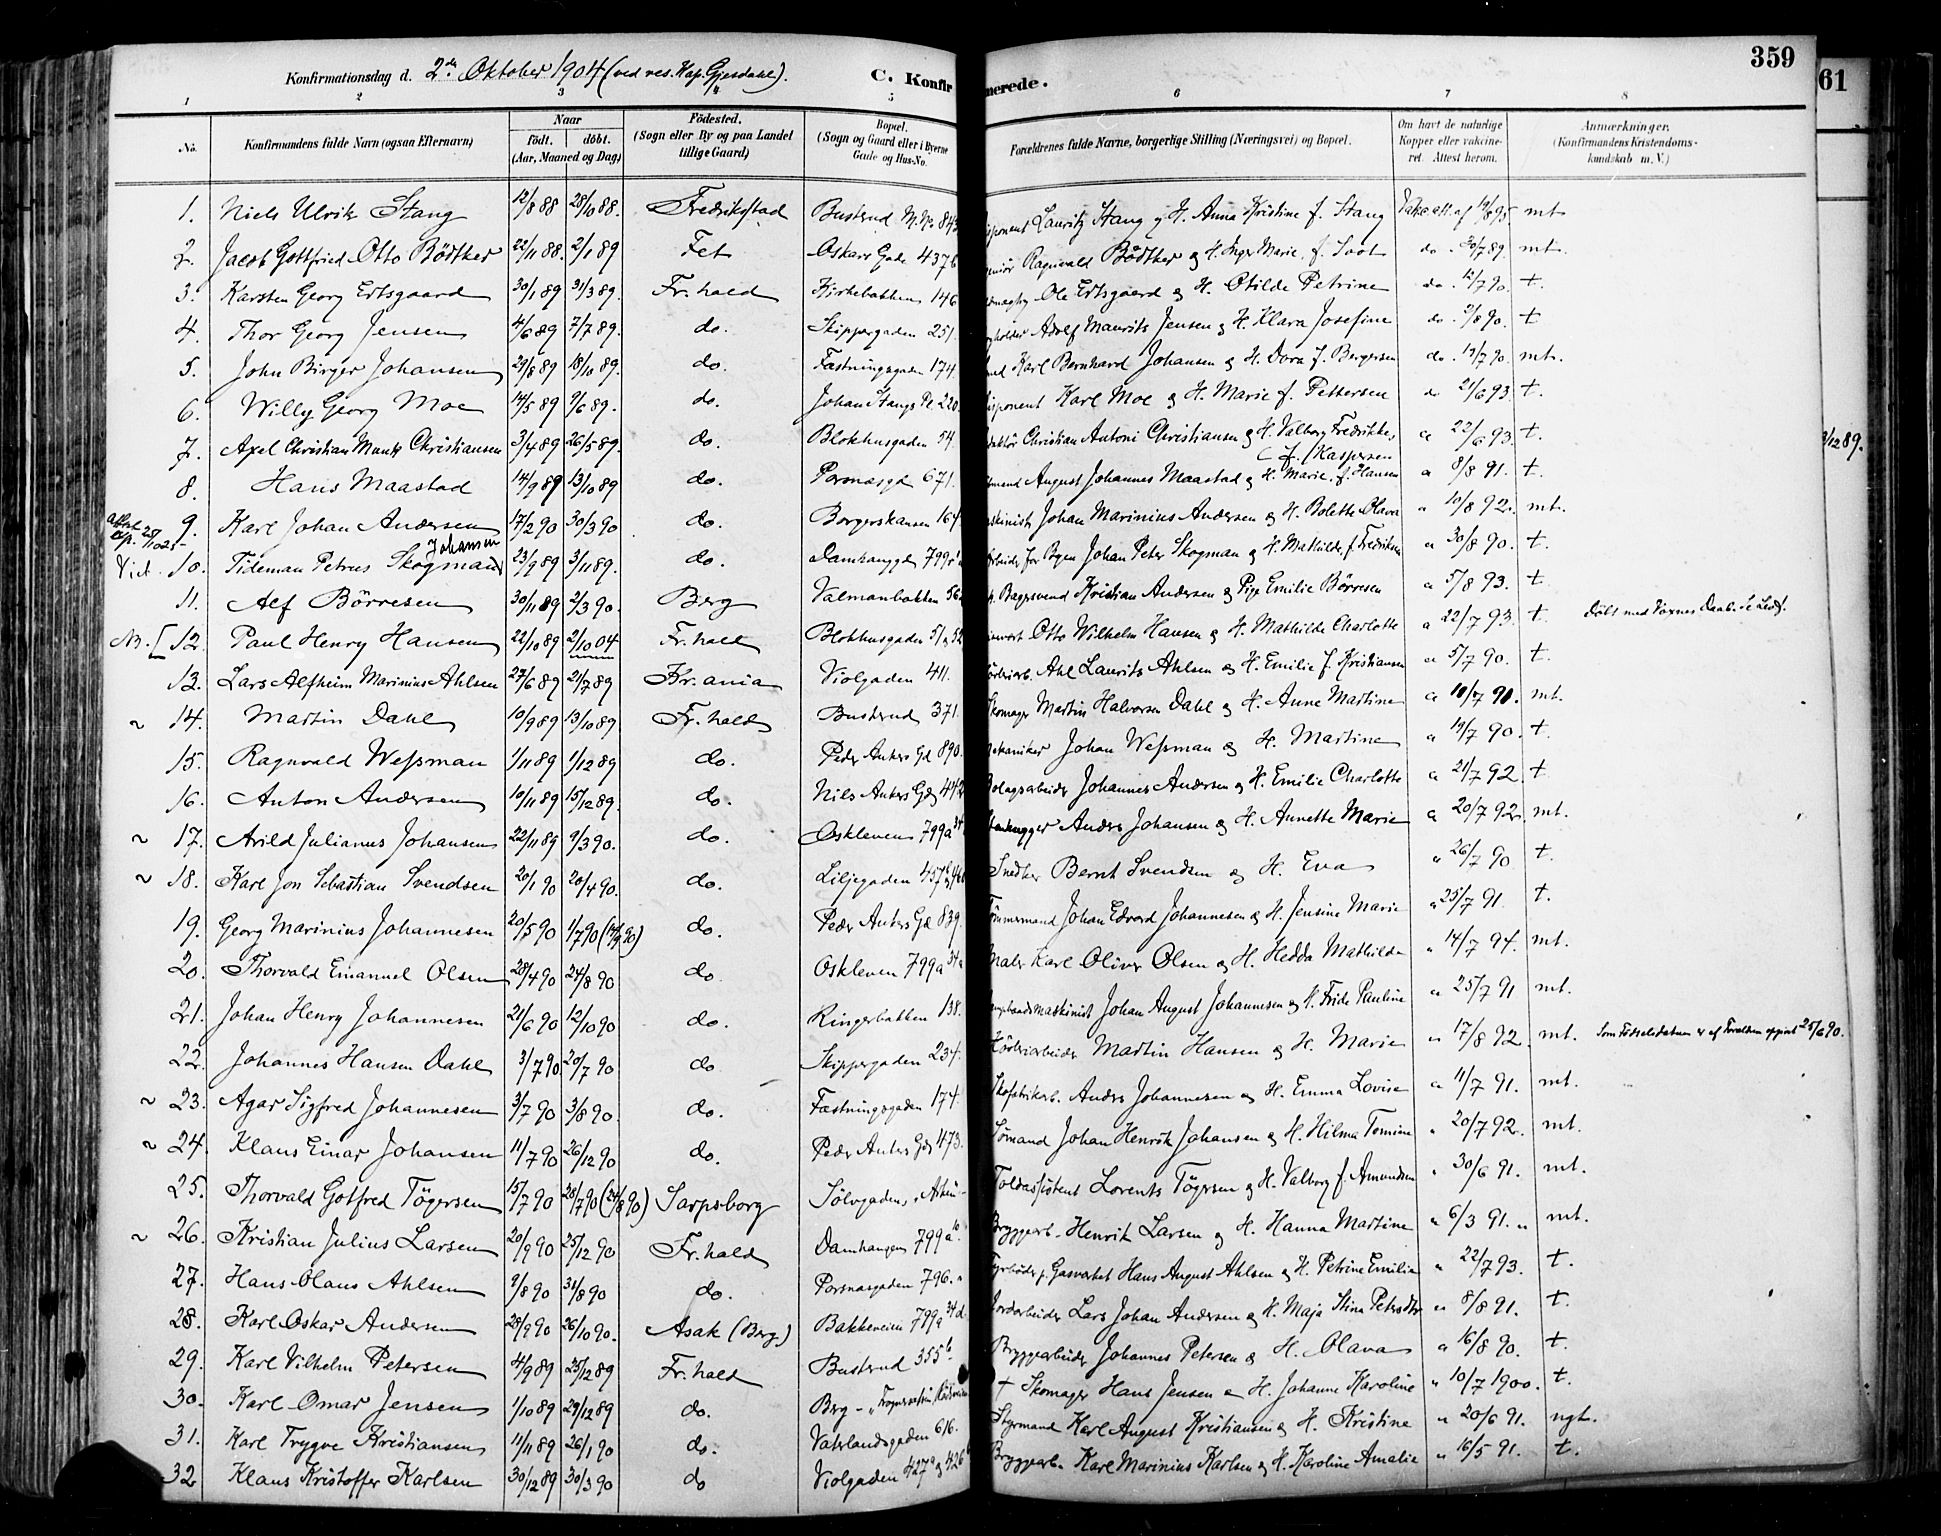 359
61
Konfirmationsdag d. 2den Oktober 1904 (ved res. Kap. Gjesdahl).
C. Konfirmerede.
1 2 3 4 5 6 7 8
No. Konfirmandens fulde Navn (ogsaa Efternavn) Naar födt. döbt. (Aar, Maaned og Dag) Födested. (Sogn eller By og paa Landet tillige Gaard) Bopæl. (Sogn og Gaard eller i Byerne Gade og Hus-No. Forældrenes fulde Navne, borgerlige Stilling (Næringsvei) og Bopæl. Om havt de naturlige Kopper eller vakcineret. Attest herom. Anmærkninger. (Konfirmandens Kristendomskundskab m. V.)
1. Niels Ulrik Stang 12/8 88 28/10 88. Fredrikstad Busterud M. No 843 Lauritz Stang og H. Anna Kristine f. Stang Vakc. att. af 14/8 95. mt
2. Jacob Gottfried Otto Bödtker 22/11 88. 2/1 89 Fet Oskars Gade 437b Ragnvald Bödtker og H. Inger Marie f. Soot do. 30/7 89. mt.
3. Karsten Georg Ertsgaard 30/1 89 31/3 89. Fr.hald Kirkebakken 146 Ole Ertsgaard og H. Otilde Petrine do. 12/7 90. t.
4. Thor Georg Jensen 4/6 89 7/7 89. do. Skippergaden 251. Adolf Maurits Jensen og H. Klara Josefine do. 2/8 90. t
5. John Birger Johansen 29/8 89 18/10 89. do. Fæstningsgaden 174. Karl Bernhard Johansen og H. Dora f. Bergersen do. 19/7 90. mt.
6. Willy Georg Moe 14/5 89 9/6 89. do. Johan Stangs Pl. 220. Karl Moe og H. Marie f. Pettersen do 21/6 93. t.
7. Axel Christian Munk Christiansen 3/4 89 26/5 89. do. Blokhusgaden 54. Christian Antoni Christiansen og H. Valborg Fredrikke, f. Kaspersen 22/6 93. t.
8. Hans Maastad 14/9 89 13/10 89 do. Porsnæsgd 671. August Johannes Maastad og H. Marie, f. Hansen " 8/8 91. t.
9. Karl Johan Andersen 17/2 90 30/3 90 do. Borgerskansen 164. Johan Marinius Andersen og H. Bolette Olava " 10/8 92. mt.
10. Tideman Petrus Skogmand Johansen 23/9 89 3/11 89. do. Damhaugg 799 Arbeider for Byen Johan Peter Skogman og H. Mathilde, f. Fredriksen " 30/8 90. t.
11. Alf Börresen 30/11 89 2/3 90. Berg Valmanbakken 56 Bagersvend Kristian Andersen og Pige Emilie Börresen " 5/8 93. t
NB. [12. Paul Henry Hansen 22/10 89 2/10 04 Fr.hald Blokhusgaden 51 og 52 Otto Wilhelm Hansen og H. Mathilde Charlotte " 22/7 93. t. Döbt med Voxnes Daab.
13. Lars Alfheim Marinius Ahlsen 27/6 89 21/7 89 Kr.ania Violgaden 411. Ahl Laurits Ahlsen og H. Emilie f. Kristiansen " 5/7 90. t.
~ 14. Martin Dahl 10/9 89 13/10 89 Fr.hald Busterud 371. Skomager Martin Halvorsen Dahl og H. Anne Martine " 10/7 91. mt.
15. Ragnvald Wessman 1/11 89 1/12 89 do. Peder Ankers Gd 890. Mekaniker Johan Wessman og H. Martine " 19/7 90. t.
16. Anton Andersen 10/11 89 15/12 89. do. Nils Ankers Gd 442 Bolagsarbeider Johannes Andersen og H. Emilie Charlotte " 21/7 92. t
~ 17. Arild Julianus Johansen 22/11 89 9/3 90. do. Oskleven 799a 34 Anders Johansen og H. Annette Marie " 20/7 92. mt.
~ 18. Karl Jon Sebastian Svendsen 20/1 90 20/4 90. do. Liljegaden 457 Snedker Bernt Svendsen og H. Eva " 26/7 90 t.
19. Georg Marinius Johannesen 20/5 90 1/7 90 (14/9 90) do. Peder Ankers Gd 839. Tömmermand Johan Edvard Johannesen og H. Jensine Marie " 25/7 91. t.
20. Thorvald Emanuel Olsen 28/4 90 24/8 90 do. Oskleven 799a 34 Maler Karl Oliver Olsen og H. Hedda Mathilde " 14/7 94. mt.
21. Johan Henry Johannesen 21/6 90 12/10 90 do. Ringerbakken 138. Johan August Johannesen og H. Frida Pauline " 25/7 91 mt.
22. Johannes Hansen Dahl 3/7 90 20/7 90 do Skippergaden 234. Martin Hansen og H. Marie " 17/8 92. mt. Som Födselsdatum er af Forældrene opgivet 25/6 90.
~ 23. Agar Sigfred Johannesen 3/7 90 3/8 90. do. Fæstningsgaden 174. Skofabrikarb. Anders Johannesen og H. Emma Lovise " 11/7 91. mt.
~ 24. Klaus Einar Johansen 11/7 90 26/12 90 do. Peder Ankers Gd 473. Sömand Johan Henrik Johansen og H. Hilma Tomine " 20/7 92. mt.
25. Thorvald Gotfred Tögersen 15/7 90 20/7 90 (24/8 90) Sarpsborg Sölvgaden, Toldassistent Lorents Tögersen og H. Valborg f. Amundsen " 30/6 91. mt.
~ 26. Kristian Julius Larsen 20/9 90 25/12 90 Fr.hald Damhaugen 799a Bryggearb. Henrik Larsen og H. Hanna Martine " 6/3 91. " mt.
27. Hans Olaus Ahlsen 9/8 90 31/8 90 do. Porsnæsgaden 796. Fyrböder p. Gasværket Hans August Ahlsen og H. Petrine Emilie " 22/7 93. t.
28. Karl Oskar Andersen 28/9 90 26/10 90. Asak (Berg.) Bakkeveien 799a 34d Jordarbeider Lars Johan Andersen og H. Maja Stina Petersdtr " 8/8 91. t.
29. Karl Vilhelm Petersen 4/9 89 25/12 89 Fr.hald Busterud 355b. Bryggearbeider Johannes Petersen og H. Olava " 16/8 90. t.
30. Karl Omar Jensen 1/10 89 29/12 89 do. Berg - † Skomager Hans Jensen og H. Johanne Karoline " 10/7 1900. t.
31. Karl Trygve Kristiansen 11/11 89 26/1 90 do. Vaterlandsgaden 616. Styrmand Karl August Kristiansen og H. Kristine " 20/6 91. ngt.
32 Klaus Kristoffer Karlsen 30/12 89 30/3 90 do Violgaden 427a og 426 Bryggearb. Karl Marinius Karlsen og H. Karoline Amalie " 16/5 91. t.
3/12 89.